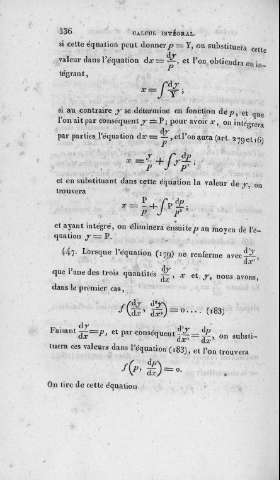 336 CALCUL INTÉGRAL
si cette équation peut donner p = Y, on substituera cette
valeur dans l'équation dx = dy/p, et l'on obtiendra en in-
tégrant,
x = ∫ dy/Y ;
si au contraire y se détermine en fonction de p, et que
l'on ait par conséquent y = P; pour avoir x, on intégrera
par parties l'équation dx = dy/p, et l'on aura (art. 279 et 16)
x = y/p + ∫ y dp/p² ;
et en substituant dans cette équation la valeur de y, on
trouvera
x = P/p + ∫ P dp/p² ;
et ayant intégré, on éliminera ensuite p au moyen de l'é-
quation y = P.
447. Lorsque l'équation (179) ne renferme avec d²y/dx²,
que l'une des trois quantités dy/dx, x et y, nous avons,
dans le premier cas,
f(dy/dx, d²y/dx²) = 0.... (183)
Faisant dy/dx = p, et par conséquent d²y/dx² = dp/dx, on substi-
tuera ces valeurs dans l'équation (183), et l'on trouvera
f(p, dp/dx) = 0.
On tire de cette équation